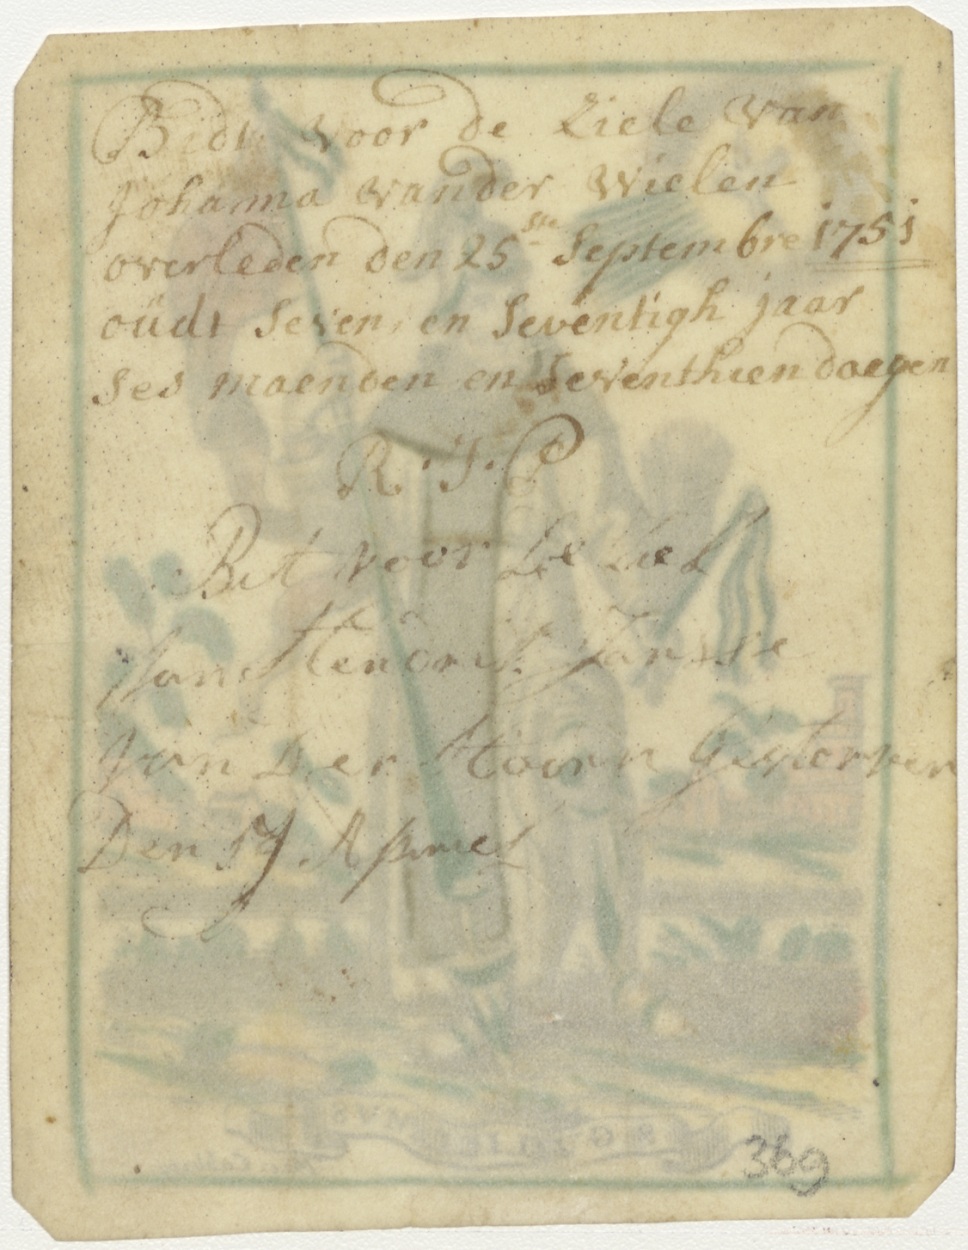 Bidt voor de Ziele van
Johanna vander Wielen
overleden den 25ste Septembre 1751
oüdt seven en seventigh jaar
ses maenden en seventhien daegen
R.I.P
Bit voor de Ziel
Jan Hendrik Jansse
Van Der Hoorn Gestorven
Den 19 Aprniel
369